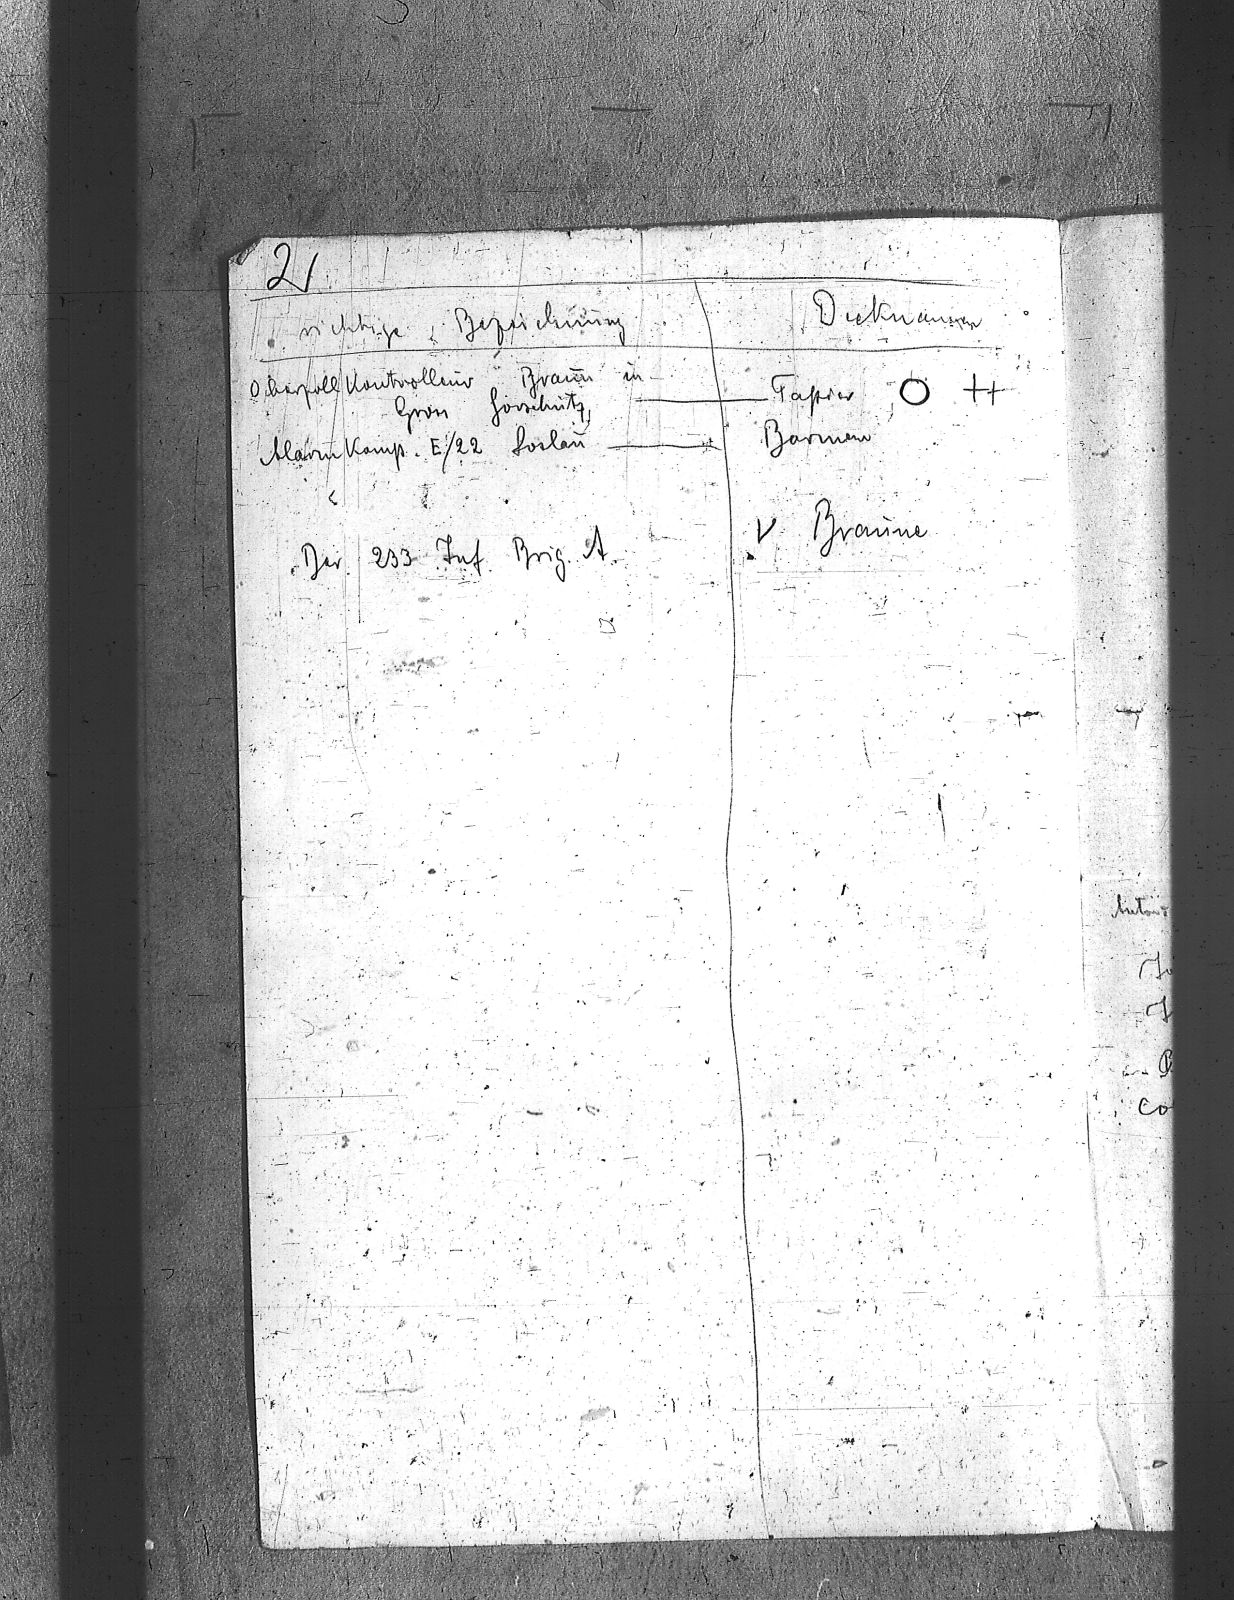 2/
richtige Bezeichnung Decknamen
Oberzoll Kontrolleur Braun in
Gron Gorschütz, Tapier O ++
Alarm Komp. E/22 Loslau Barmen
Der 233 Inf Brig. A. V Braune
Co